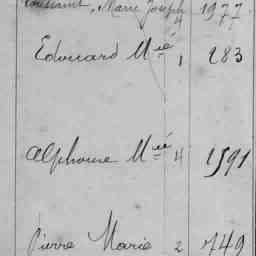 Toussaint, Marie Joseph 4 1977
Edouard Mié 1 283
Alphonse Mié 4 1591
Pierre Marie 2 749